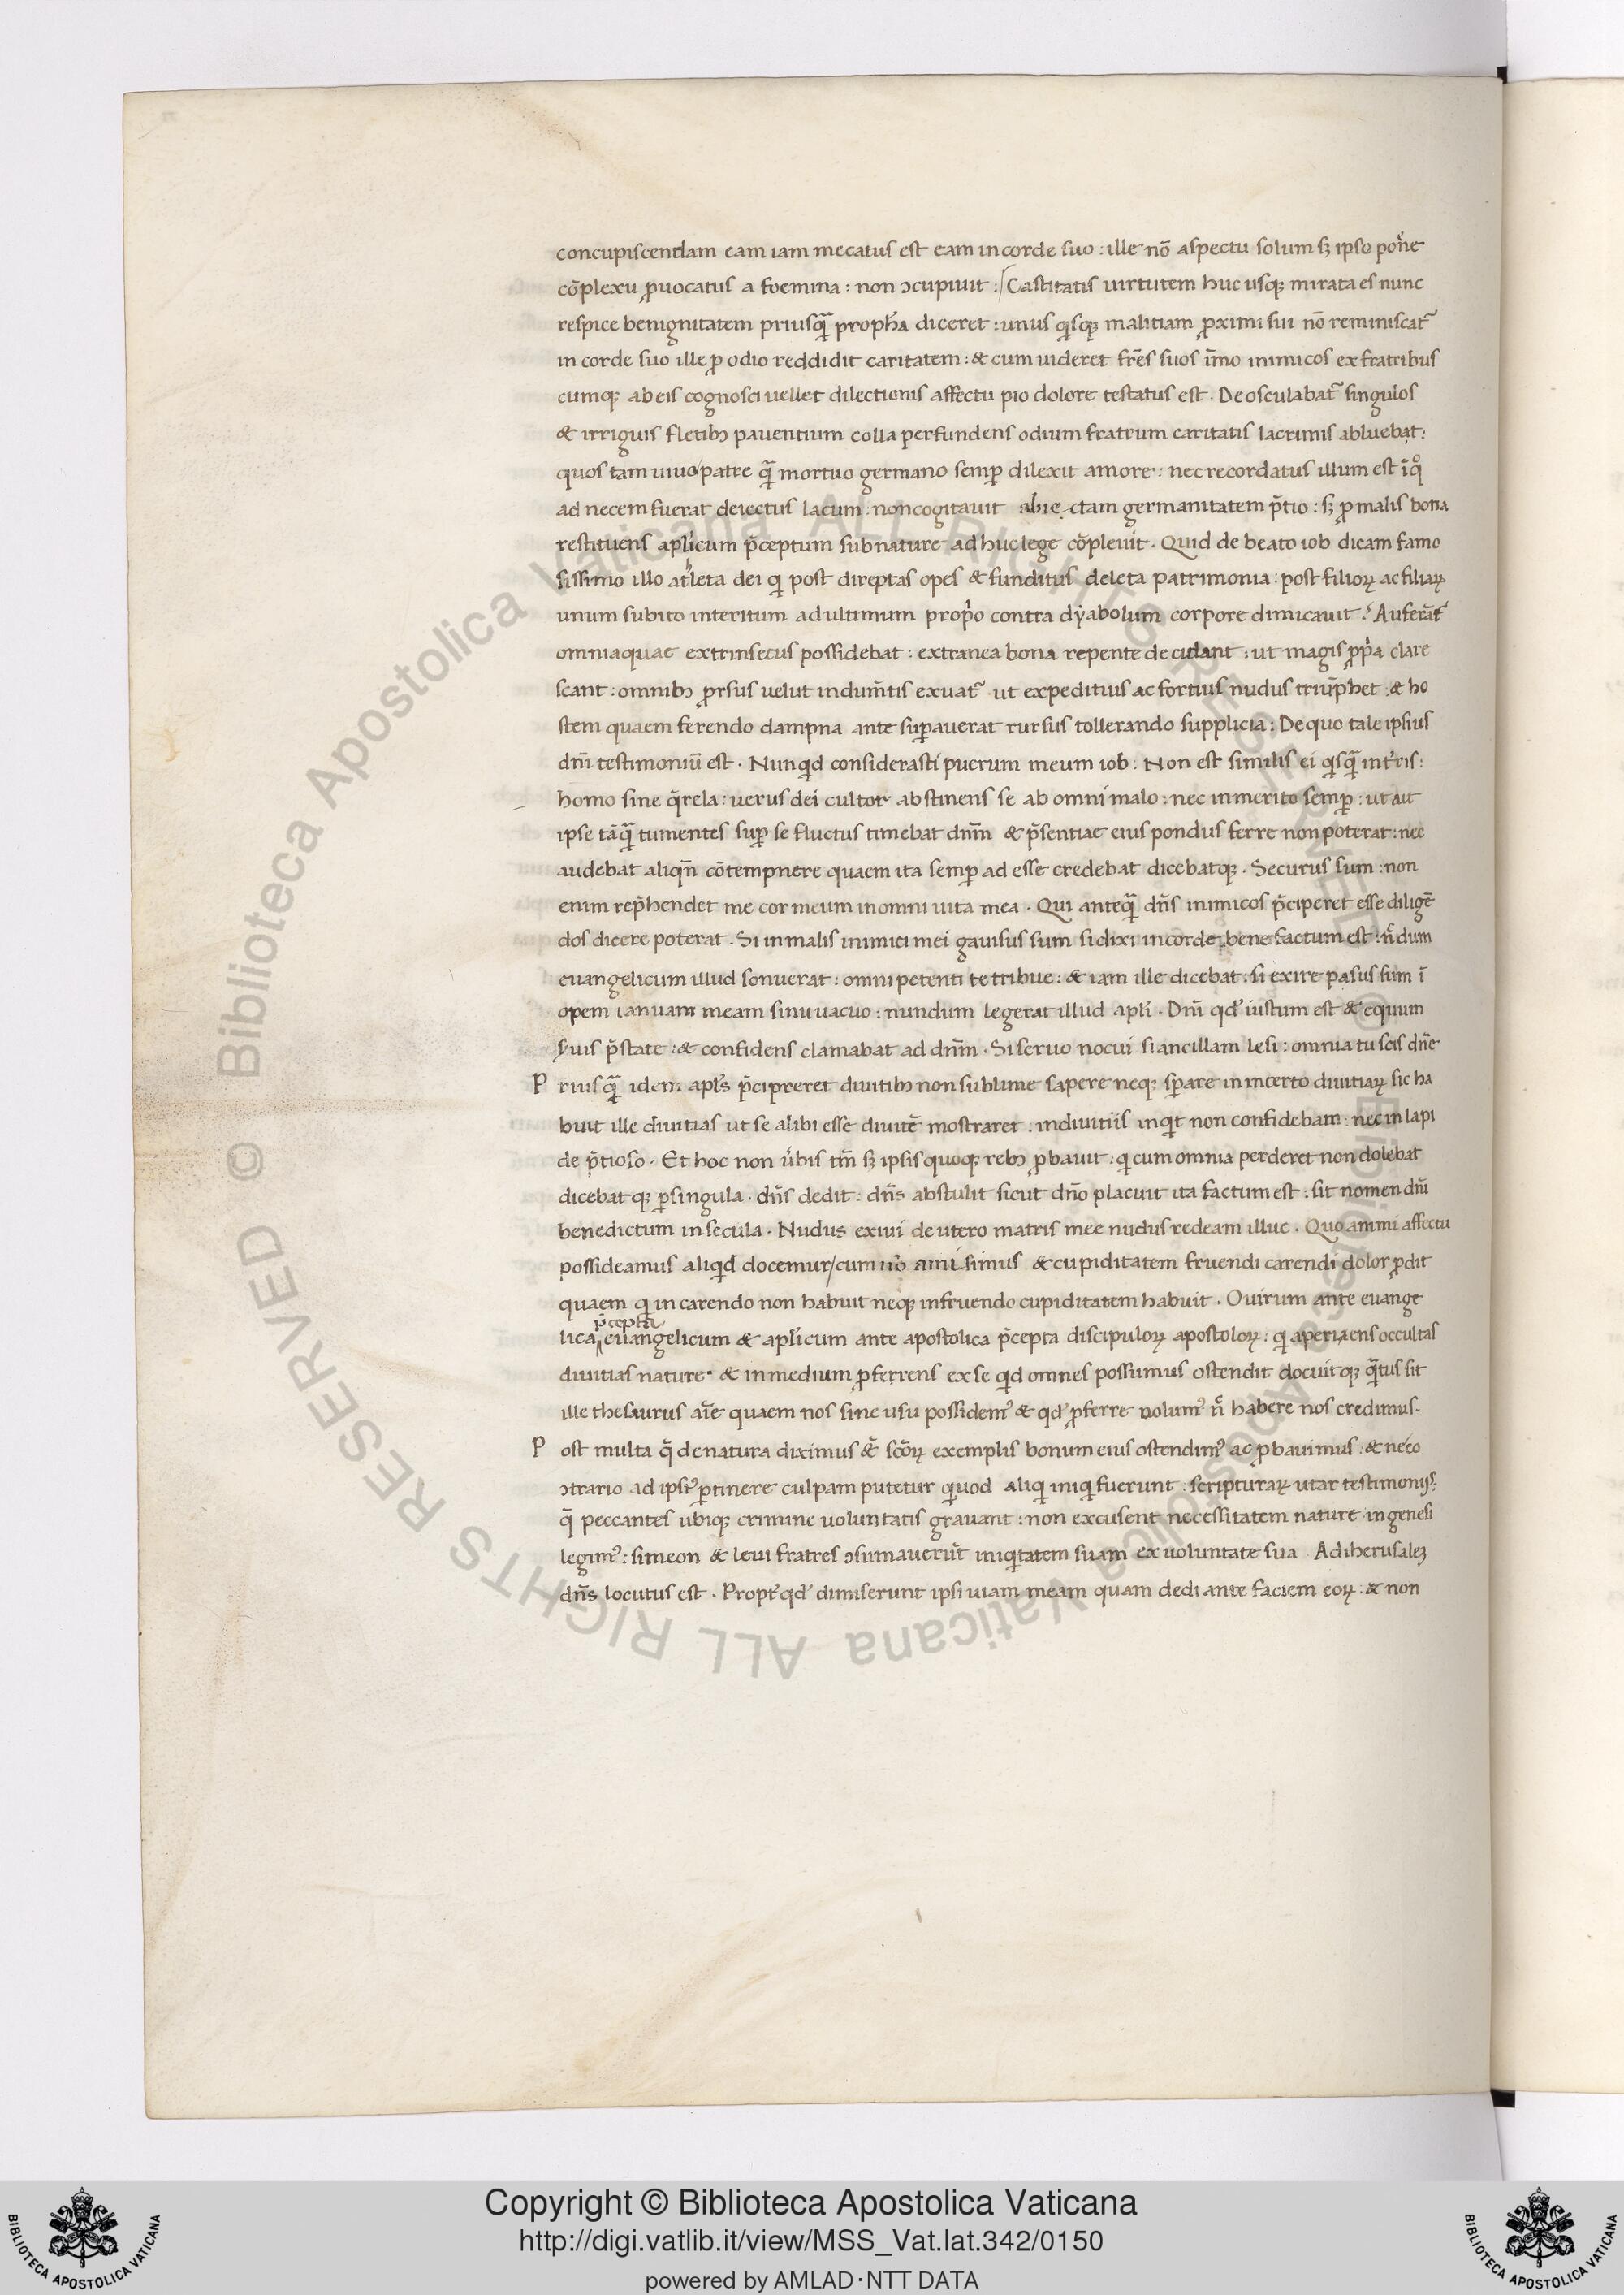 concupiscendam eam iam mecatus est eam in corde suo : ille nō aspectu solum sȝ ipso
cōplexu ꝓuocatus a foemina : non ɔcupiuit : Castitatis uirtutem huc usqꝫ mirata es nunc
respice benignitatem priusqᷓ propħa diceret : unus qⁱsqꝫ malitiam ꝓximi sui nō reminiscat᷑
in corde suo ille ꝓ odio reddidit caritatem : & cum uideret fr̄es suos īmo inimicos ex fratribus
cumqꝫ ab eis cognosci uellet dilectionis affectu pio dolore testatus est . De osculabat᷑ singulos
& irriguis fletibꝫ pauentium colla perfundens odium fratrum caritatis lacrimis abluebat :
quos tam uiuo/patre qᷓ mortuo germano semꝑ dilexit amore : nec recordatus illum est ī qͦ
ad necem fuerat deiectus lacum : non cogitauit abiectam germanitatem p̄tio : sȝ ꝓ malis bona
restituens apl̓icum p̄ceptum sub nature ad huc lege cōpleuit . Quid de beato iob dicam famo
sissimo illo athleta dei qⁱ post direptas opes & funditus deleta patrimonia : post filioꝝ ac filiaꝝ
unum subito interitum ad ultimum propⁱo contra dyabolum corpore dimicauit ? Auferūt᷑
omnia quae extrinsecus possidebat : extranea bona repente decidant : ut magis ꝓpⁱa clare
scant : omnibꝫ ꝓrsus uelut indum̄tis exuat᷑ ut expeditius ac fortius nudus triūphet : & ho
stem quaem ferendo dampna ante suꝑauerat rursus tollerando supplicia : De quo tale ipsius
dn̄i testimoniū est . Nunqⁱd considerasti puerum meum iob : Non est similis ei qⁱsqᷓ in t̓ris :
homo sine q̄rela : uerus dei cultor abstinens se ab omni malo : nec inmerito semꝑ : ut ait
ipse tāqᷓ tumentes suꝑ se fluctus timebat dn̄m & p̄sentiae eius pondus ferre non poterat : nec
audebat aliqn̄ cōtempnere quaem ita semꝑ ad esse credebat dicebatqꝫ . Securus sum : non
enim rep̄hendet me cor meum in omni uita mea . Qui anteqᷓ dn̄s inimicos p̄ciperet esse diligē
dos dicere poterat . Si in malis inimici mei gauisus sum si dixi in corde bene factum est : n̄dum
euangelicum illud sonuerat : omni petenti te tribue : & iam ille dicebat : si exire pasus sum ī
opem ianuam meam sinu uacuo : nundum legerat illud apl̓i . Dn̄i qd̓ iustum est & equum
suis p̄state : & confidens clamabat ad dn̄m . Si seruo nocui si ancillam lesi : omnia tu scis dn̄e
P riusqᷓ idem apl̓s p̄cipreret diuitibꝫ non sublime sapere neqꝫ sꝑare in incerto diuitiaꝝ sic ha
buit ille diuitias ut se alibi esse diuitē mostraret . in diuitiis inqⁱt non confidebam : nec in lapi
de p̄tioso . Et hoc non u̓bis tm̄ sȝ ipsis quoqꝫ rebꝫ ꝓbauit : qⁱ cum omnia perderet non dolebat
dicebatqꝫ ꝑ singula . dn̄s dedit : dn̄s abstulit sicut dn̄o placuit ita factum est : sit nomen dn̄i
benedictum in secula . Nudus exiui de utero matris mee nudus redeam illuc . Quo animi affectu
possideamus aliqⁱd docemur/cum amisimus & cupiditatem fruendi carendi dolor ꝓdit
quaem qⁱ in carendo non habuit neqꝫ in fruendo cupiditatem habuit . O uirum ante euange
lica p̄cepta euangelicum & apl̓icum ante apostolica p̄cepta discipuloꝝ apostoloꝝ : qⁱ aperiens occultas
diuitias nature & in medium ꝓferrens ex se qⁱd omnes possumus ostendit docuitqꝫ qᷓtus sit
ille thesaurus aīe quaem nos sine usu possidem᷒ & qd̓ ꝓferre nolum᷒ n̄ habere nos credimus .
P ost multa q̄ de natura diximus & scōꝝ exemplis bonum eius ostendim᷒ ac ꝓbauimus : & ne co
ɔtrario ad ipsi᷒ ꝑtinere culpam putetur quod aliqⁱ iniqⁱ fuerunt . scripturaꝝ utar testimoniis :
q̄ peccantes ubiqꝫ crimine uoluntatis grauant : non excusent necessitatem nature in genesi
legim᷒ : simeon & leui fratres ɔsumauerūt iniqⁱtatem suam ex uoluntate sua . Ad iherusalē
dn̄s locutus est . Propt̓ qd̓ dimiserunt ipsi uiam meam quam dedi ante faciem eoꝝ : & non
© Biblioteca Apostolica Vaticana ALL RIGHTS RESERVED © Biblioteca Apostolica Vaticana ALL RIGHTS RESERVED
Copyright © Biblioteca Apostolica Vaticana
http://digi.vatlib.it/view/MSS_Vat.lat.342/0150
powered by AMLAD·NTT DATA
BIBLIOTECA APOSTOLICA VATICANA
BIBLIOTECA APOSTOLICA VATICANA